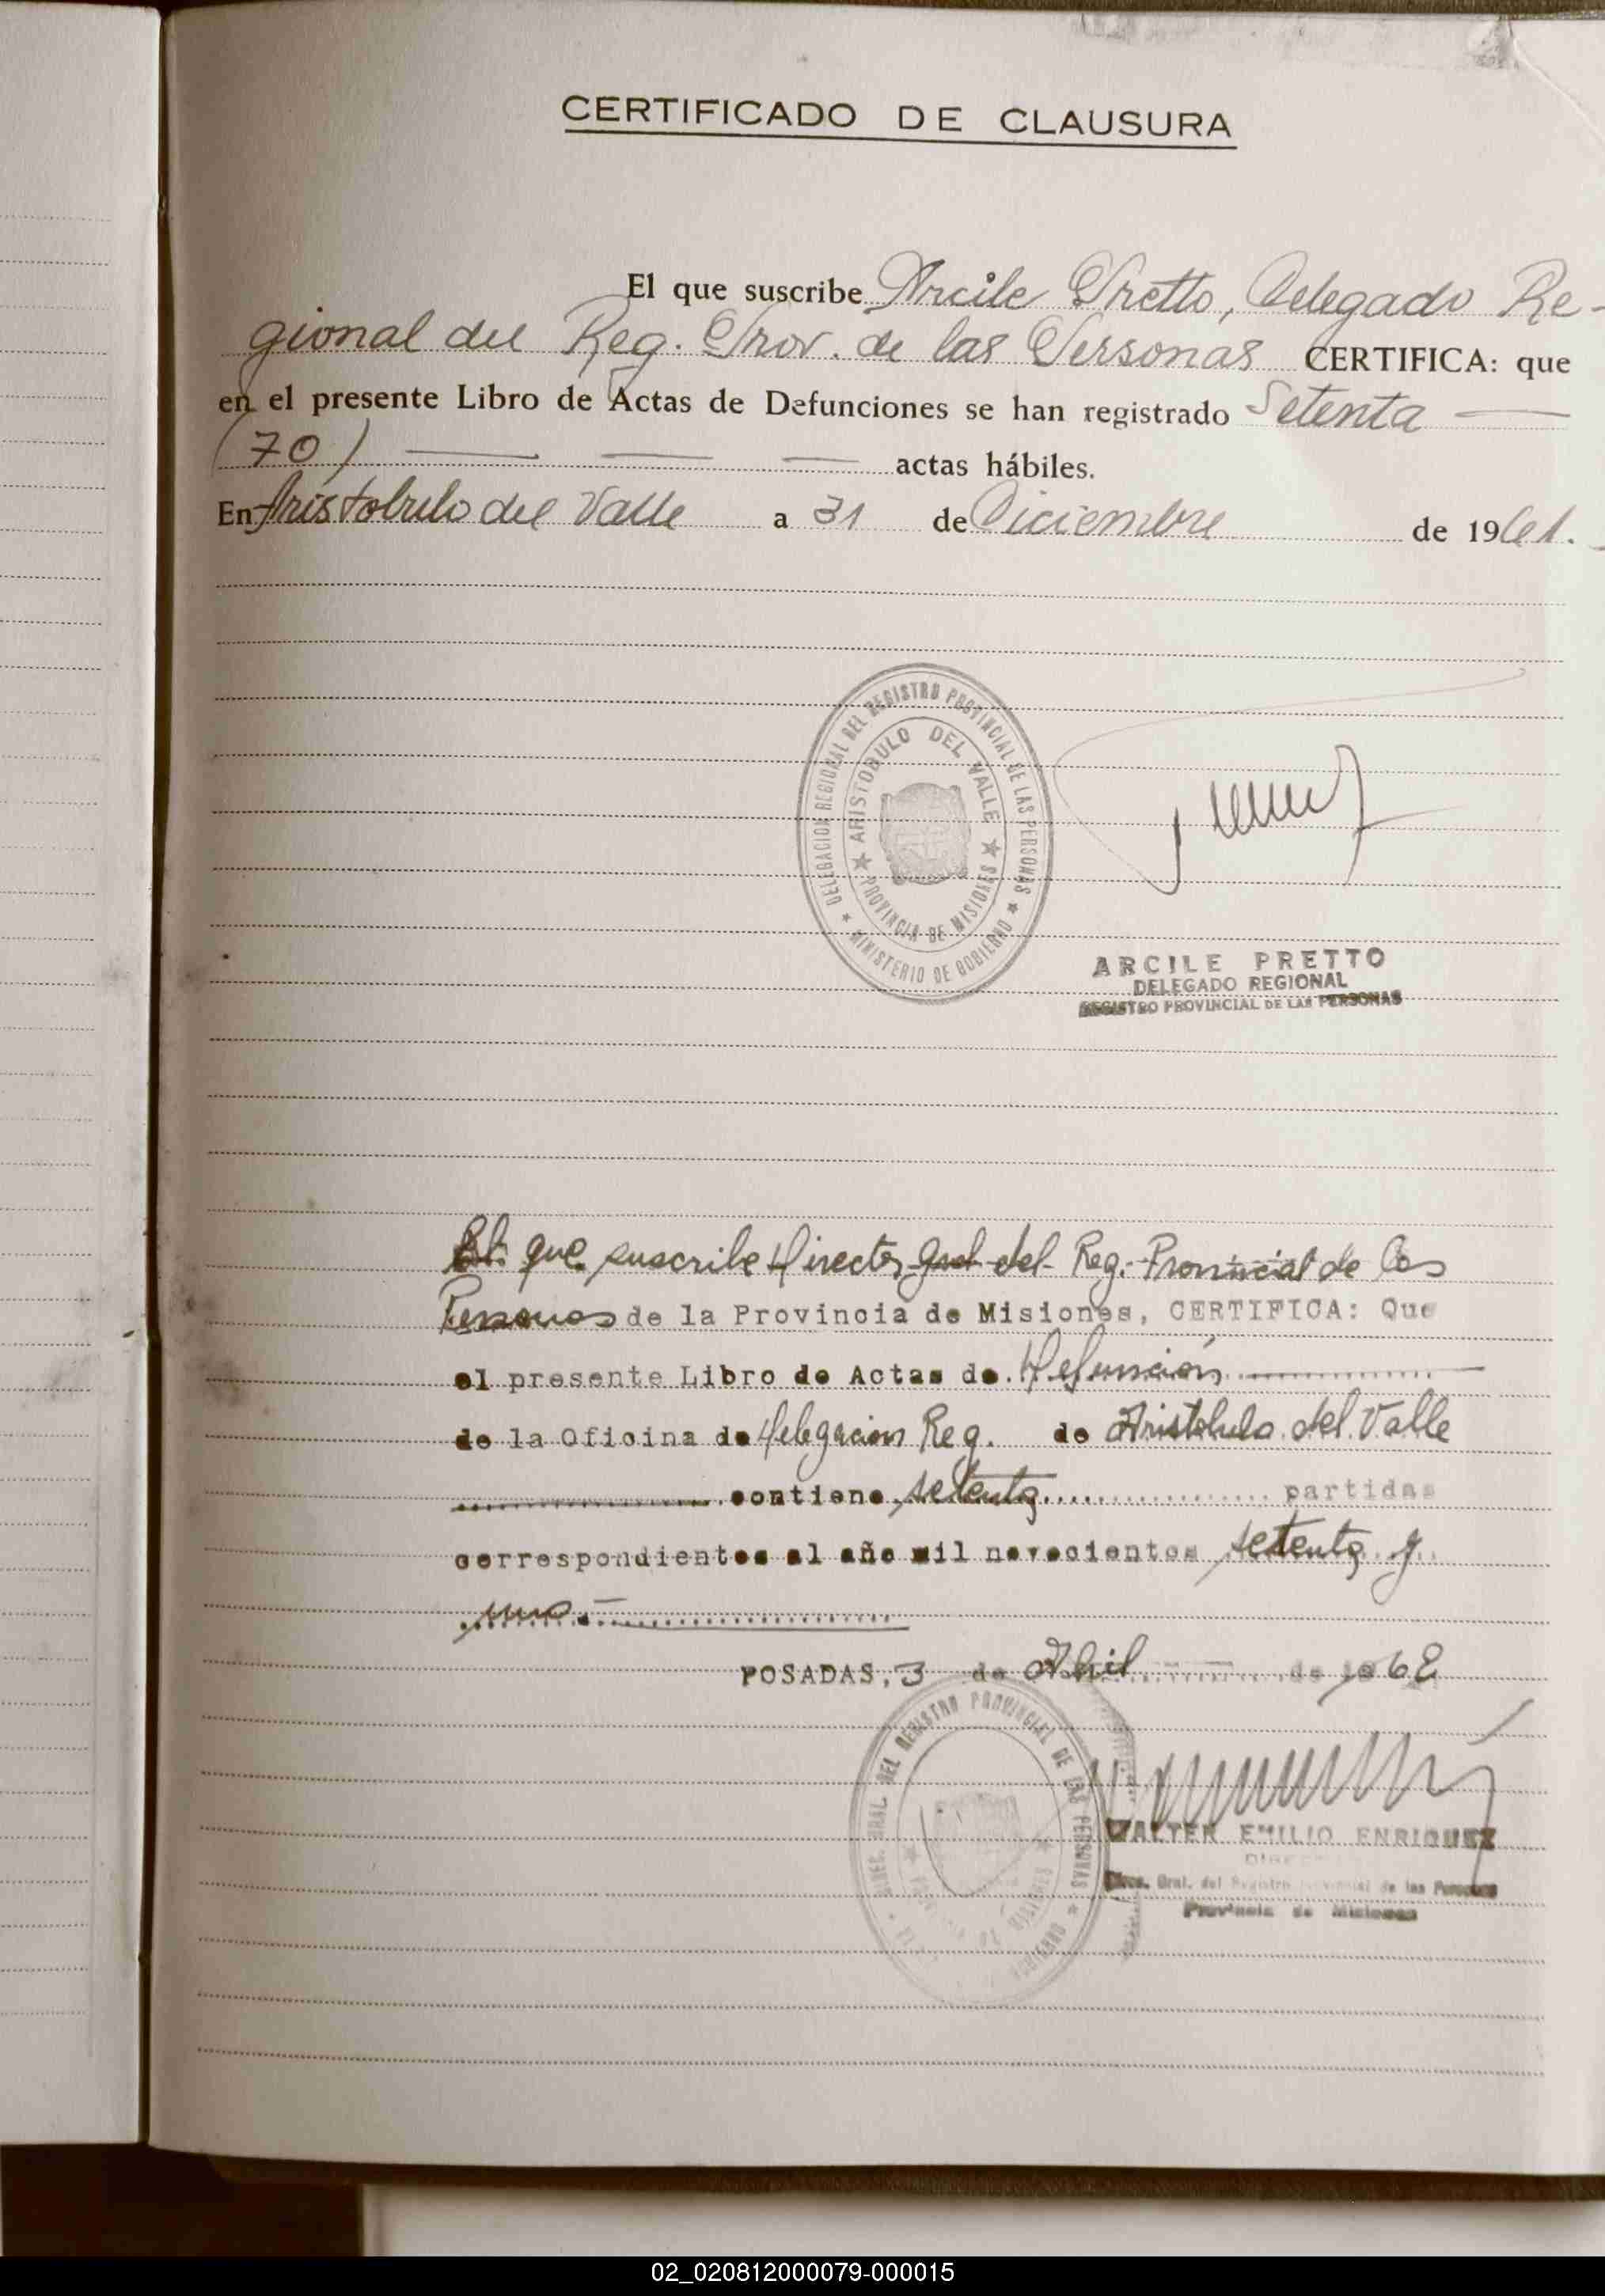 CERTIFICADO DE CLAUSURA
El que suscribe Arcile Pretto, Delegado Re-
gional del Reg. Prov. de las Personas CERTIFICA: que
en el presente Libro de Actas de Defunciones se han registrado Setenta
(70) actas hábiles.
En Aristobulo del Valle a 31 de Diciembre de 1961.
DELEGACION REGIONAL DEL REGISTRO PROVINCIAL DE LAS PERSONAS
MINISTERIO DE GOBIERNO
ARISTOBULO DEL VALLE
PROVINCIA DE MISIONES
ARCILE PRETTO
DELEGADO REGIONAL
REGISTRO PROVINCIAL DE LAS PERSONAS
El que suscribe Director Gral del Reg. Provincial de las
Personas de la Provincia de Misiones, CERTIFICA: Que
el presente Libro de Actas de Defunción
de la Oficina de Delegacion Reg. de Aristobulo del Valle
contiene setenta partidas
correspondientes al año mil novecientos setenta y
uno.
POSADAS, 3 de Abril de 1962
DEL REGISTRO PROVINCIAL DE LAS PERSONAS
WALTER EMILIO ENRIQUEZ
Direc. Gral. del Registro Provincial de las Personas
Provincia de Misiones
02_020812000079-000015